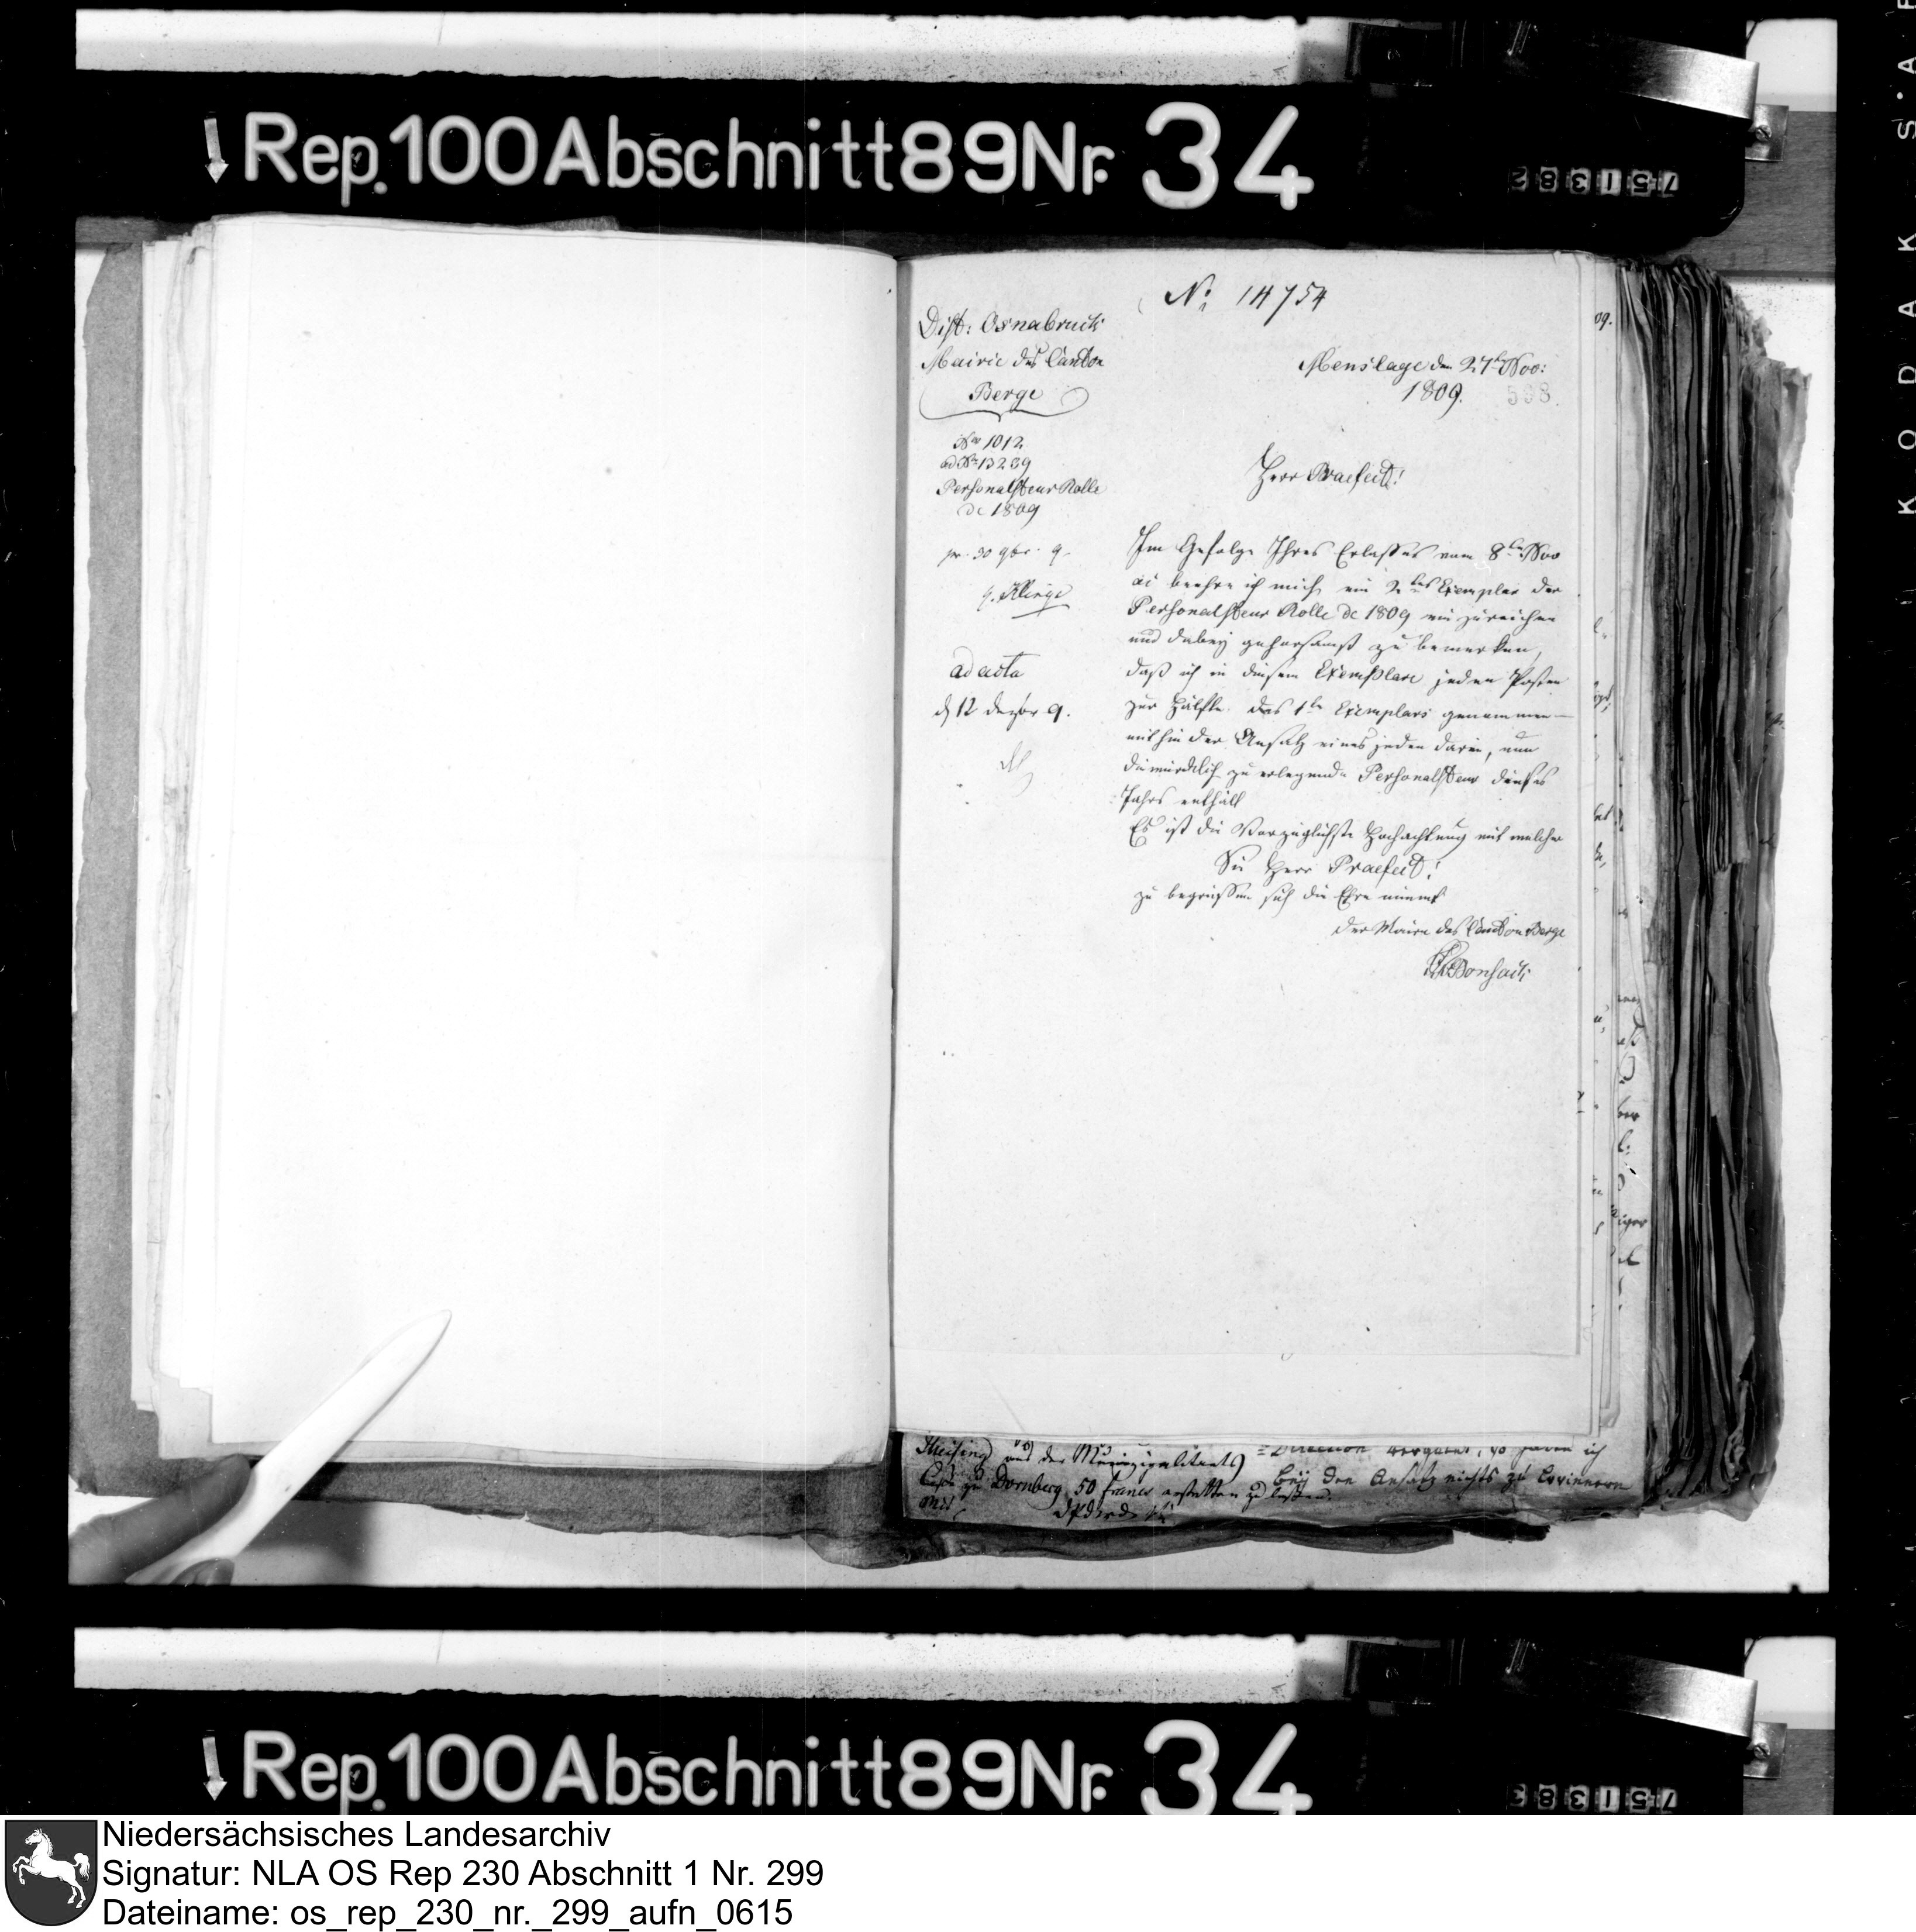 Rep. 100 Abschnitt 89 Nr. 34
751382
No: 14754
Dist: Osnabruck
Mairie des Canton
Berge
Menslage den 27ten Nov:
1809.
598.
No 1012
ad No 13239
Personalsteur Rolle
de 1809
Herr Praefect!
pr. 30 9br. 9.
Im Gefolge Ihres Erlasses vom 8ten Nov
ac beehre ich mich, ein 2tes Exemplar der
Personalsteur Rolle de 1809 einzureichen
und dabey gehorsamst zu bemerken,
ad acta
daß ich in diesem Exemplare jeden Posten
d 12 dezbr 9.
zur Hälfte des 1ten Exemplars genommen
mithin der Ansatz eines jeden darin, nun
die würklich zu erlegende Personalsteur dieses
Jahrs enthält
Es ist die Vorzüglichste Hochachtung mit welcher
Sie Herr Praefect!
zu begrüssen sich die Ehre nimmt
der Maire des Canton Berge
aus der Munizipalitaets
zu Dornberg 50 francs erstatten zu lassen.
bey den Ansatz nichts zu erinnern
Rep. 100 Abschnitt 89 Nr. 34
751383
KODAK S.A F
Niedersächsisches Landesarchiv
Signatur: NLA OS Rep 230 Abschnitt 1 Nr. 299
Dateiname: os_rep_230_nr._299_aufn_0615